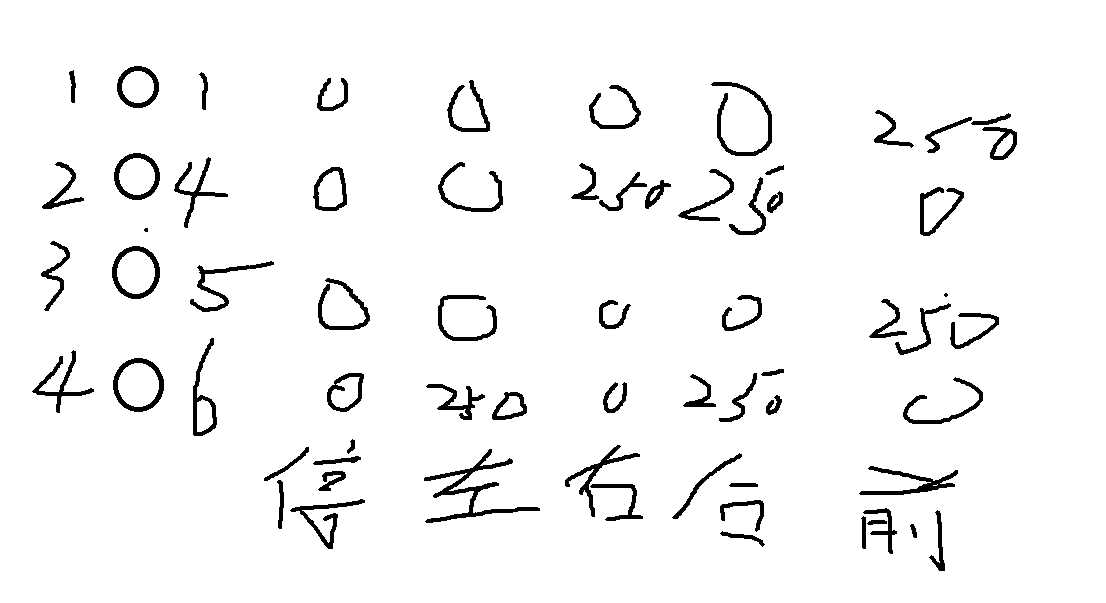 1 ○ 1 0 0 0 0 250
2 ○ 4 0 0 250 250 0
3 ○ 5 0 0 0 0 250
4 ○ 6 0 250 0 250 0
停 左 右 后 前